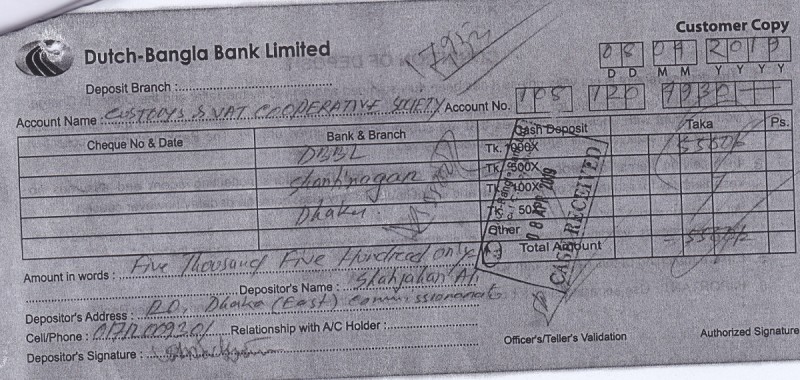 Customer Copy
Dutch-Bangla Bank Limited
D D M M Y Y Y Y
Deposit Branch :
Account Name : CUSTOMS & VAT COOPERATIVE SOCIETY Account No. 105 120
Cheque No & Date Bank & Branch Cash Deposit Taka Ps.
DBBL Tk. 1000X
Shantinagar Tk. 500X
Tk. 100X
Dhaka. Tk. 50X
Other
Total Amount
08 APR 2009
CASH RECEIVED
Amount in words : Five Thousand Five Hundred only
Depositor's Name : Shahjahan Ali
Depositor's Address : Dhaka (East) Commissionarate
Cell/Phone : Relationship with A/C Holder :
Depositor's Signature :
Officer's/Teller's Validation Authorized Signature